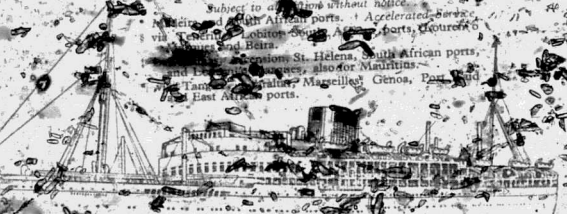 Subject to alteration without notice.
Madeira and South African ports. † Accelerated Service,
via Teneriffe, Lobito, South African ports, Lourenco
Marques and Beira.
Ascension, St. Helena, South African ports,
and Marques, also for Mauritius.
Tangier, Gibraltar, Marseilles, Genoa, Port
and East African ports.